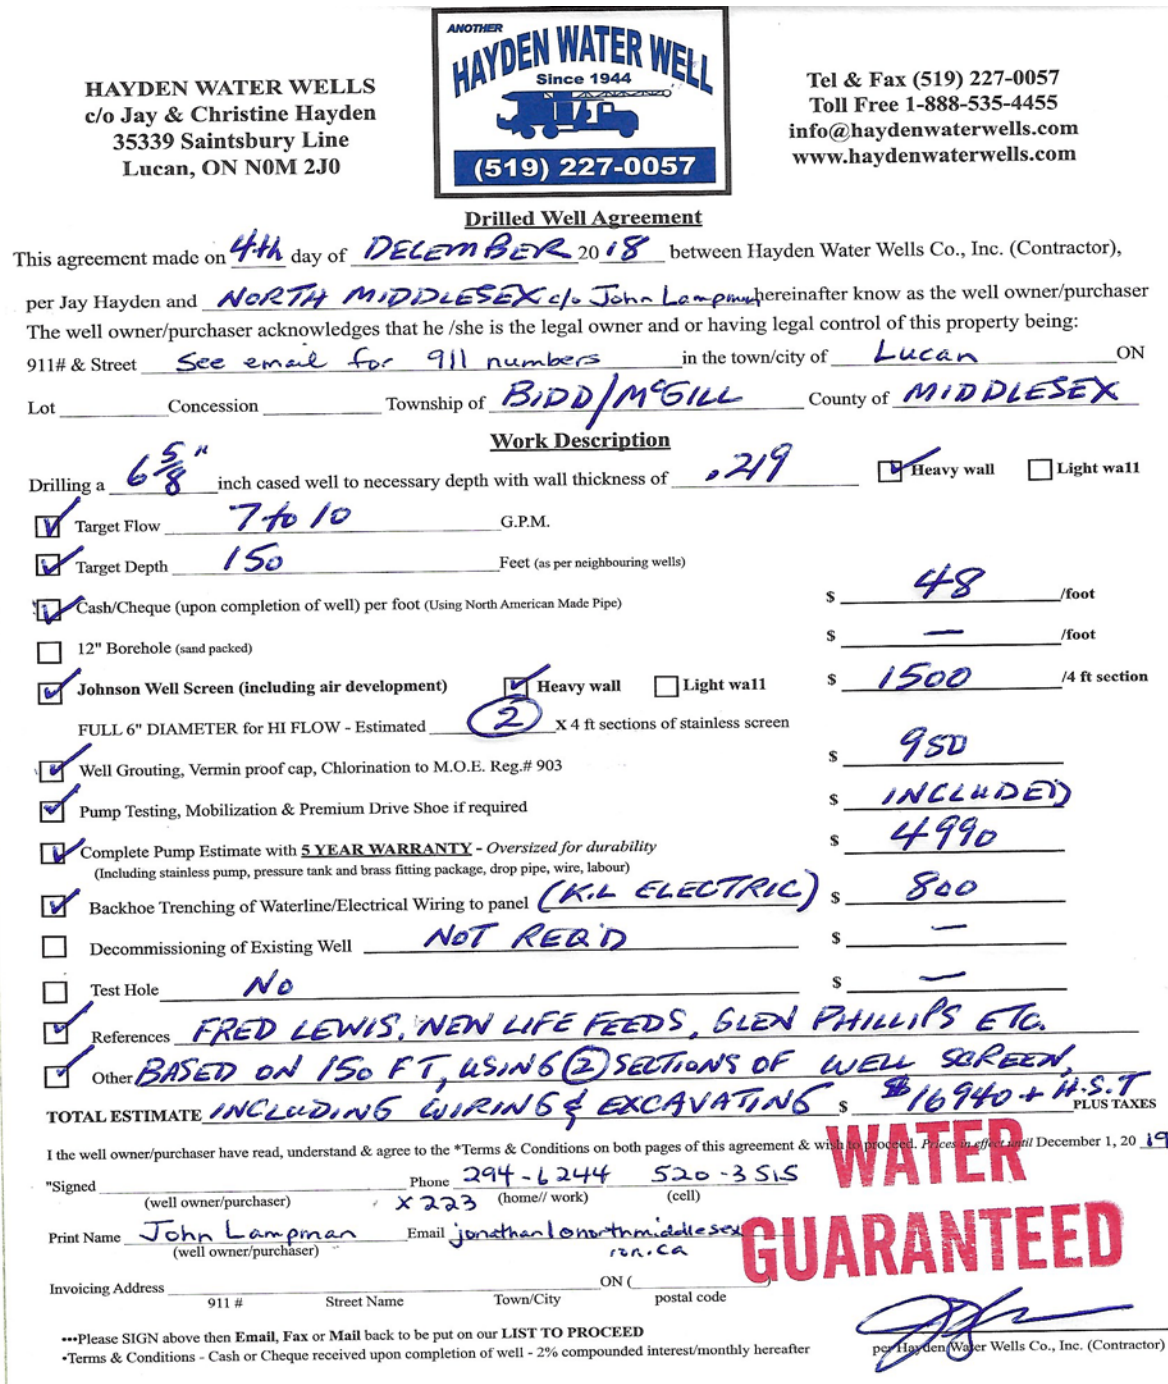 HAYDEN WATER WELLS
c/o Jay & Christine Hayden
35339 Saintsbury Line
Lucan, ON N0M 2J0
ANOTHER
HAYDEN WATER WELL
Since 1944
(519) 227-0057
Tel & Fax (519) 227-0057
Toll Free 1-888-535-4455
info@haydenwaterwells.com
www.haydenwaterwells.com
Drilled Well Agreement
This agreement made on 4th day of DECEMBER 20 18 between Hayden Water Wells Co., Inc. (Contractor),
per Jay Hayden and NORTH MIDDLESEX c/o John Lampman hereinafter know as the well owner/purchaser
The well owner/purchaser acknowledges that he /she is the legal owner and or having legal control of this property being:
911# & Street See email for 911 numbers in the town/city of Lucan ON
Lot Concession Township of BIDD/McGILL County of MIDDLESEX
Work Description
Drilling a 6 5/8" inch cased well to necessary depth with wall thickness of .219 Heavy wall Light wall
Target Flow 7 to 10 G.P.M.
Target Depth 150 Feet (as per neighbouring wells)
Cash/Cheque (upon completion of well) per foot (Using North American Made Pipe) $ 48 /foot
12" Borehole (sand packed) $ — /foot
Johnson Well Screen (including air development) Heavy wall Light wall $ 1500 /4 ft section
FULL 6" DIAMETER for HI FLOW - Estimated 2 X 4 ft sections of stainless screen
Well Grouting, Vermin proof cap, Chlorination to M.O.E. Reg.# 903 $ 950
Pump Testing, Mobilization & Premium Drive Shoe if required $ INCLUDED
Complete Pump Estimate with 5 YEAR WARRANTY - Oversized for durability $ 4990
(Including stainless pump, pressure tank and brass fitting package, drop pipe, wire, labour)
Backhoe Trenching of Waterline/Electrical Wiring to panel (K.L ELECTRIC) $ 800
Decommissioning of Existing Well NOT REQ'D $ —
Test Hole NO $ —
References FRED LEWIS, NEW LIFE FEEDS, GLEN PHILLIPS ETC.
Other BASED ON 150 FT, USING 2 SECTIONS OF WELL SCREEN,
TOTAL ESTIMATE INCLUDING WIRING & EXCAVATING $ $16940 + H.S.T PLUS TAXES
I the well owner/purchaser have read, understand & agree to the *Terms & Conditions on both pages of this agreement & wish to proceed. Prices in effect until December 1, 20 19
WATER
GUARANTEED
"Signed Phone 294-6244 520-3515
(well owner/purchaser) x 223 (home// work) (cell)
Print Name John Lampman Email jonathanl@northmiddlesex
(well owner/purchaser) on.ca
Invoicing Address ON (
911 # Street Name Town/City postal code
•••Please SIGN above then Email, Fax or Mail back to be put on our LIST TO PROCEED
•Terms & Conditions - Cash or Cheque received upon completion of well - 2% compounded interest/monthly hereafter
per Hayden Water Wells Co., Inc. (Contractor)